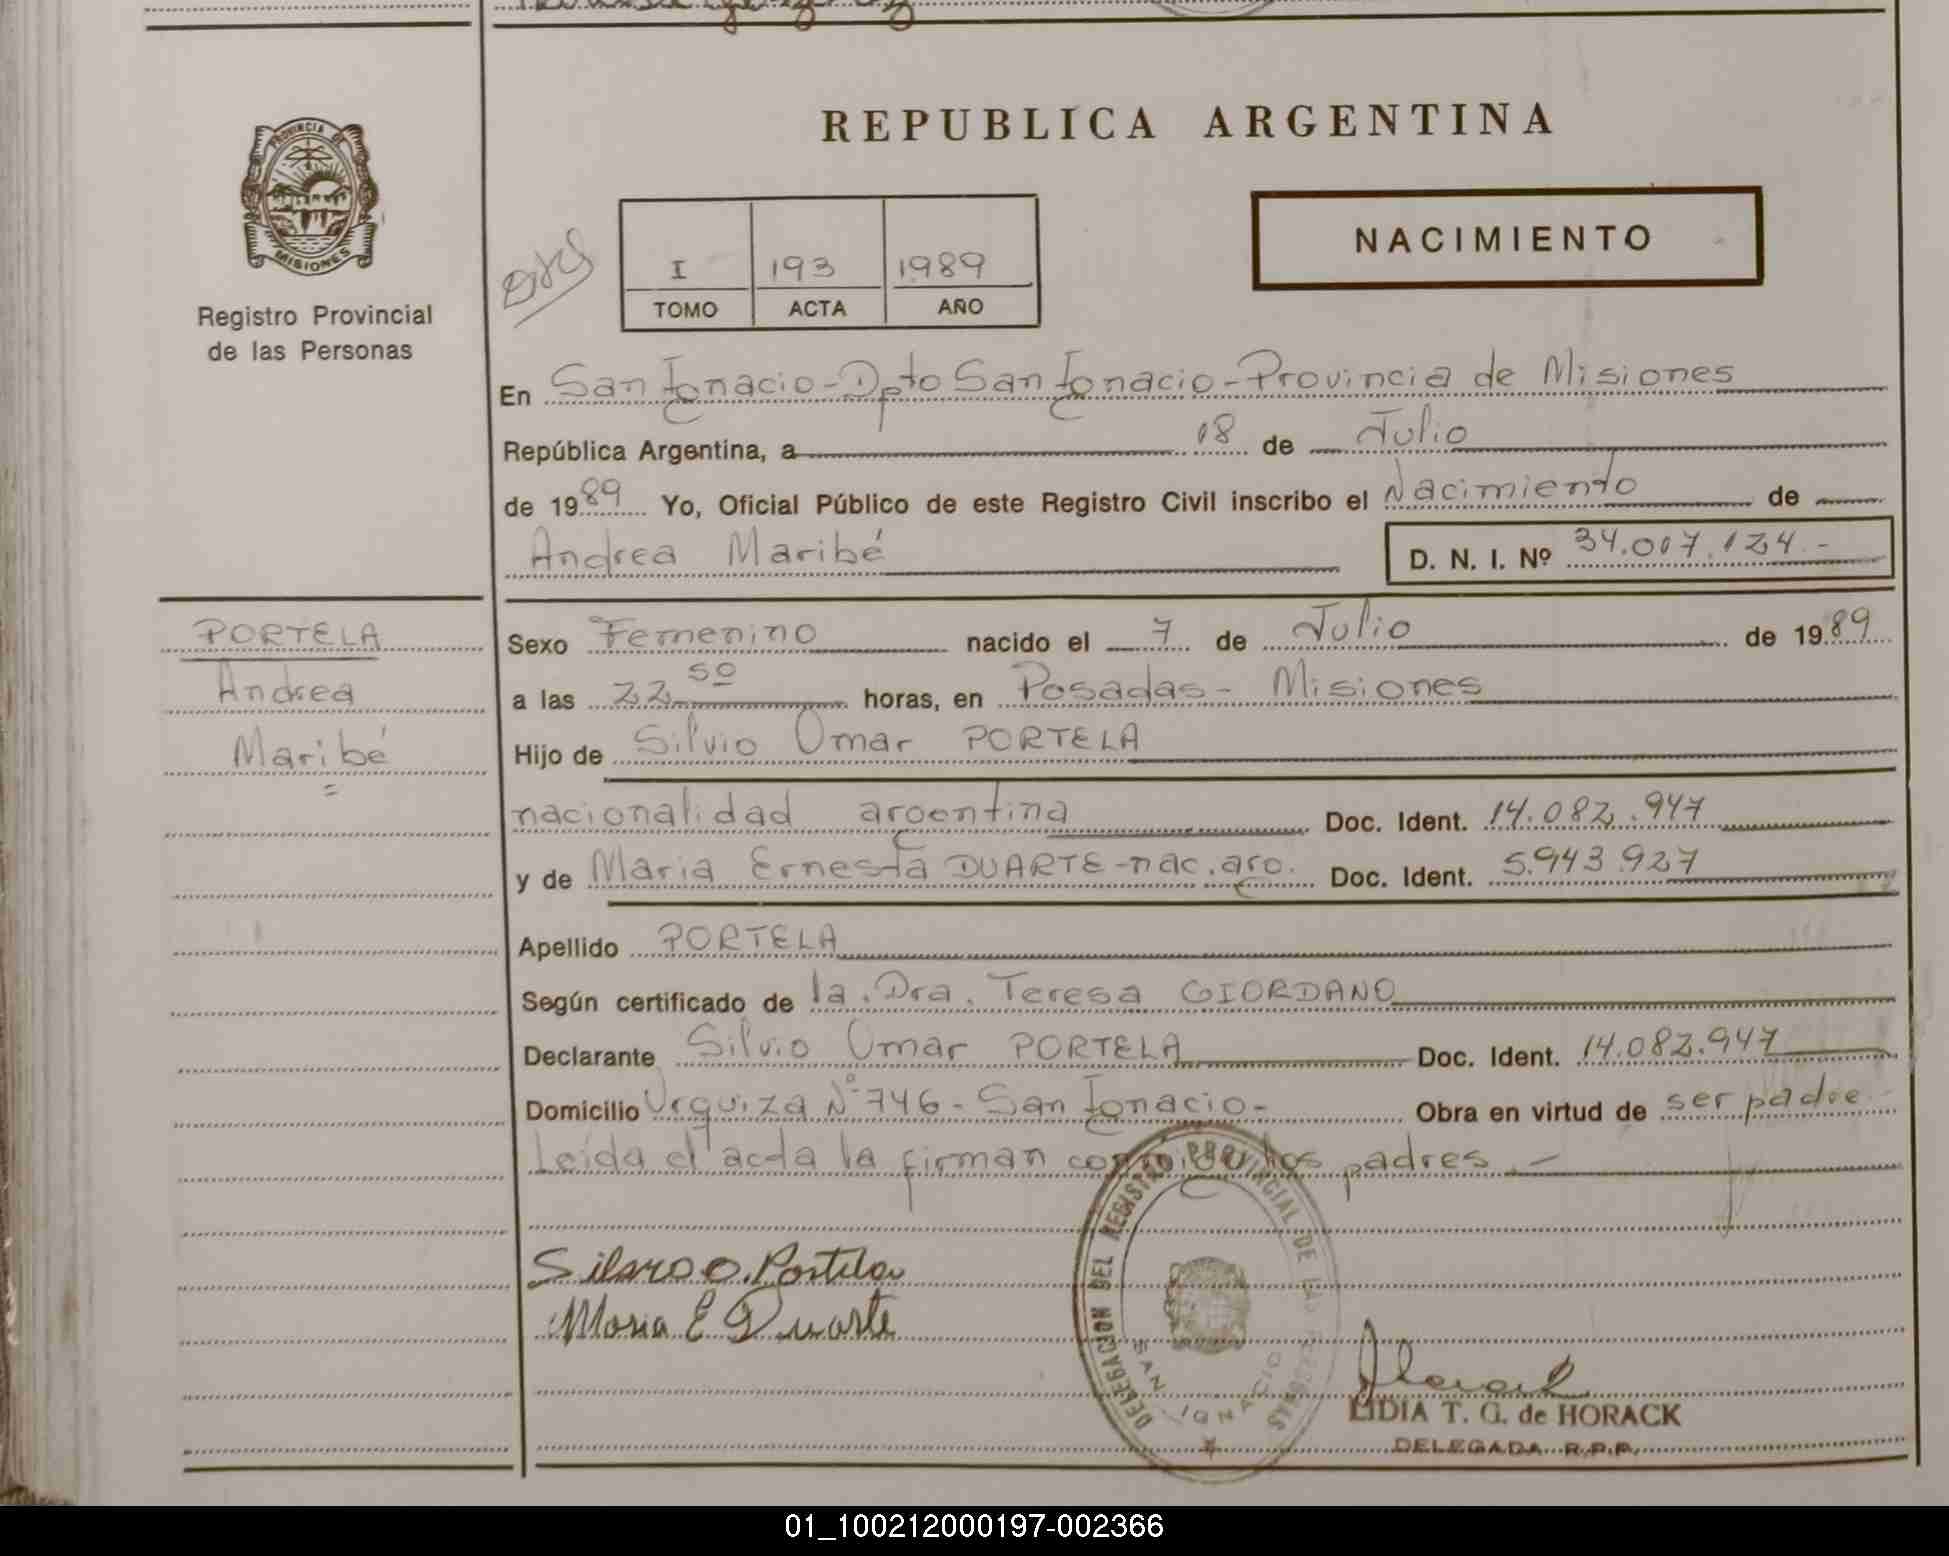 PROVINCIA DE
MISIONES
Registro Provincial
de las Personas
REPUBLICA ARGENTINA
NACIMIENTO
I 193 1989
TOMO ACTA AÑO
En San Ignacio - Dpto San Ignacio - Provincia de Misiones
República Argentina, a 18 de Julio
de 1989 Yo, Oficial Público de este Registro Civil inscribo el Nacimiento de
Andrea Maribé D. N. I. Nº 34.007.124.-
PORTELA
Andrea
Maribé
Sexo Femenino nacido el 7 de Julio de 1989
a las 22 50 horas, en Posadas - Misiones
Hijo de Silvio Omar PORTELA
nacionalidad argentina Doc. Ident. 14.082.947
y de Maria Ernesta DUARTE - nac. arg. Doc. Ident. 5.943.927
Apellido PORTELA
Según certificado de la. Dra. Teresa GIORDANO
Declarante Silvio Omar PORTELA Doc. Ident. 14.082.947
Domicilio Urquiza Nº 746 - San Ignacio - Obra en virtud de ser padre -
Leída el acta la firman conmigo los padres .-
Silvio O. Portela
Maria E Duarte
DELEGACION DEL REGISTRO PROVINCIAL DE LAS PERSONAS
SAN IGNACIO
LIDIA T. G. de HORACK
DELEGADA R.P.P.
01_100212000197-002366